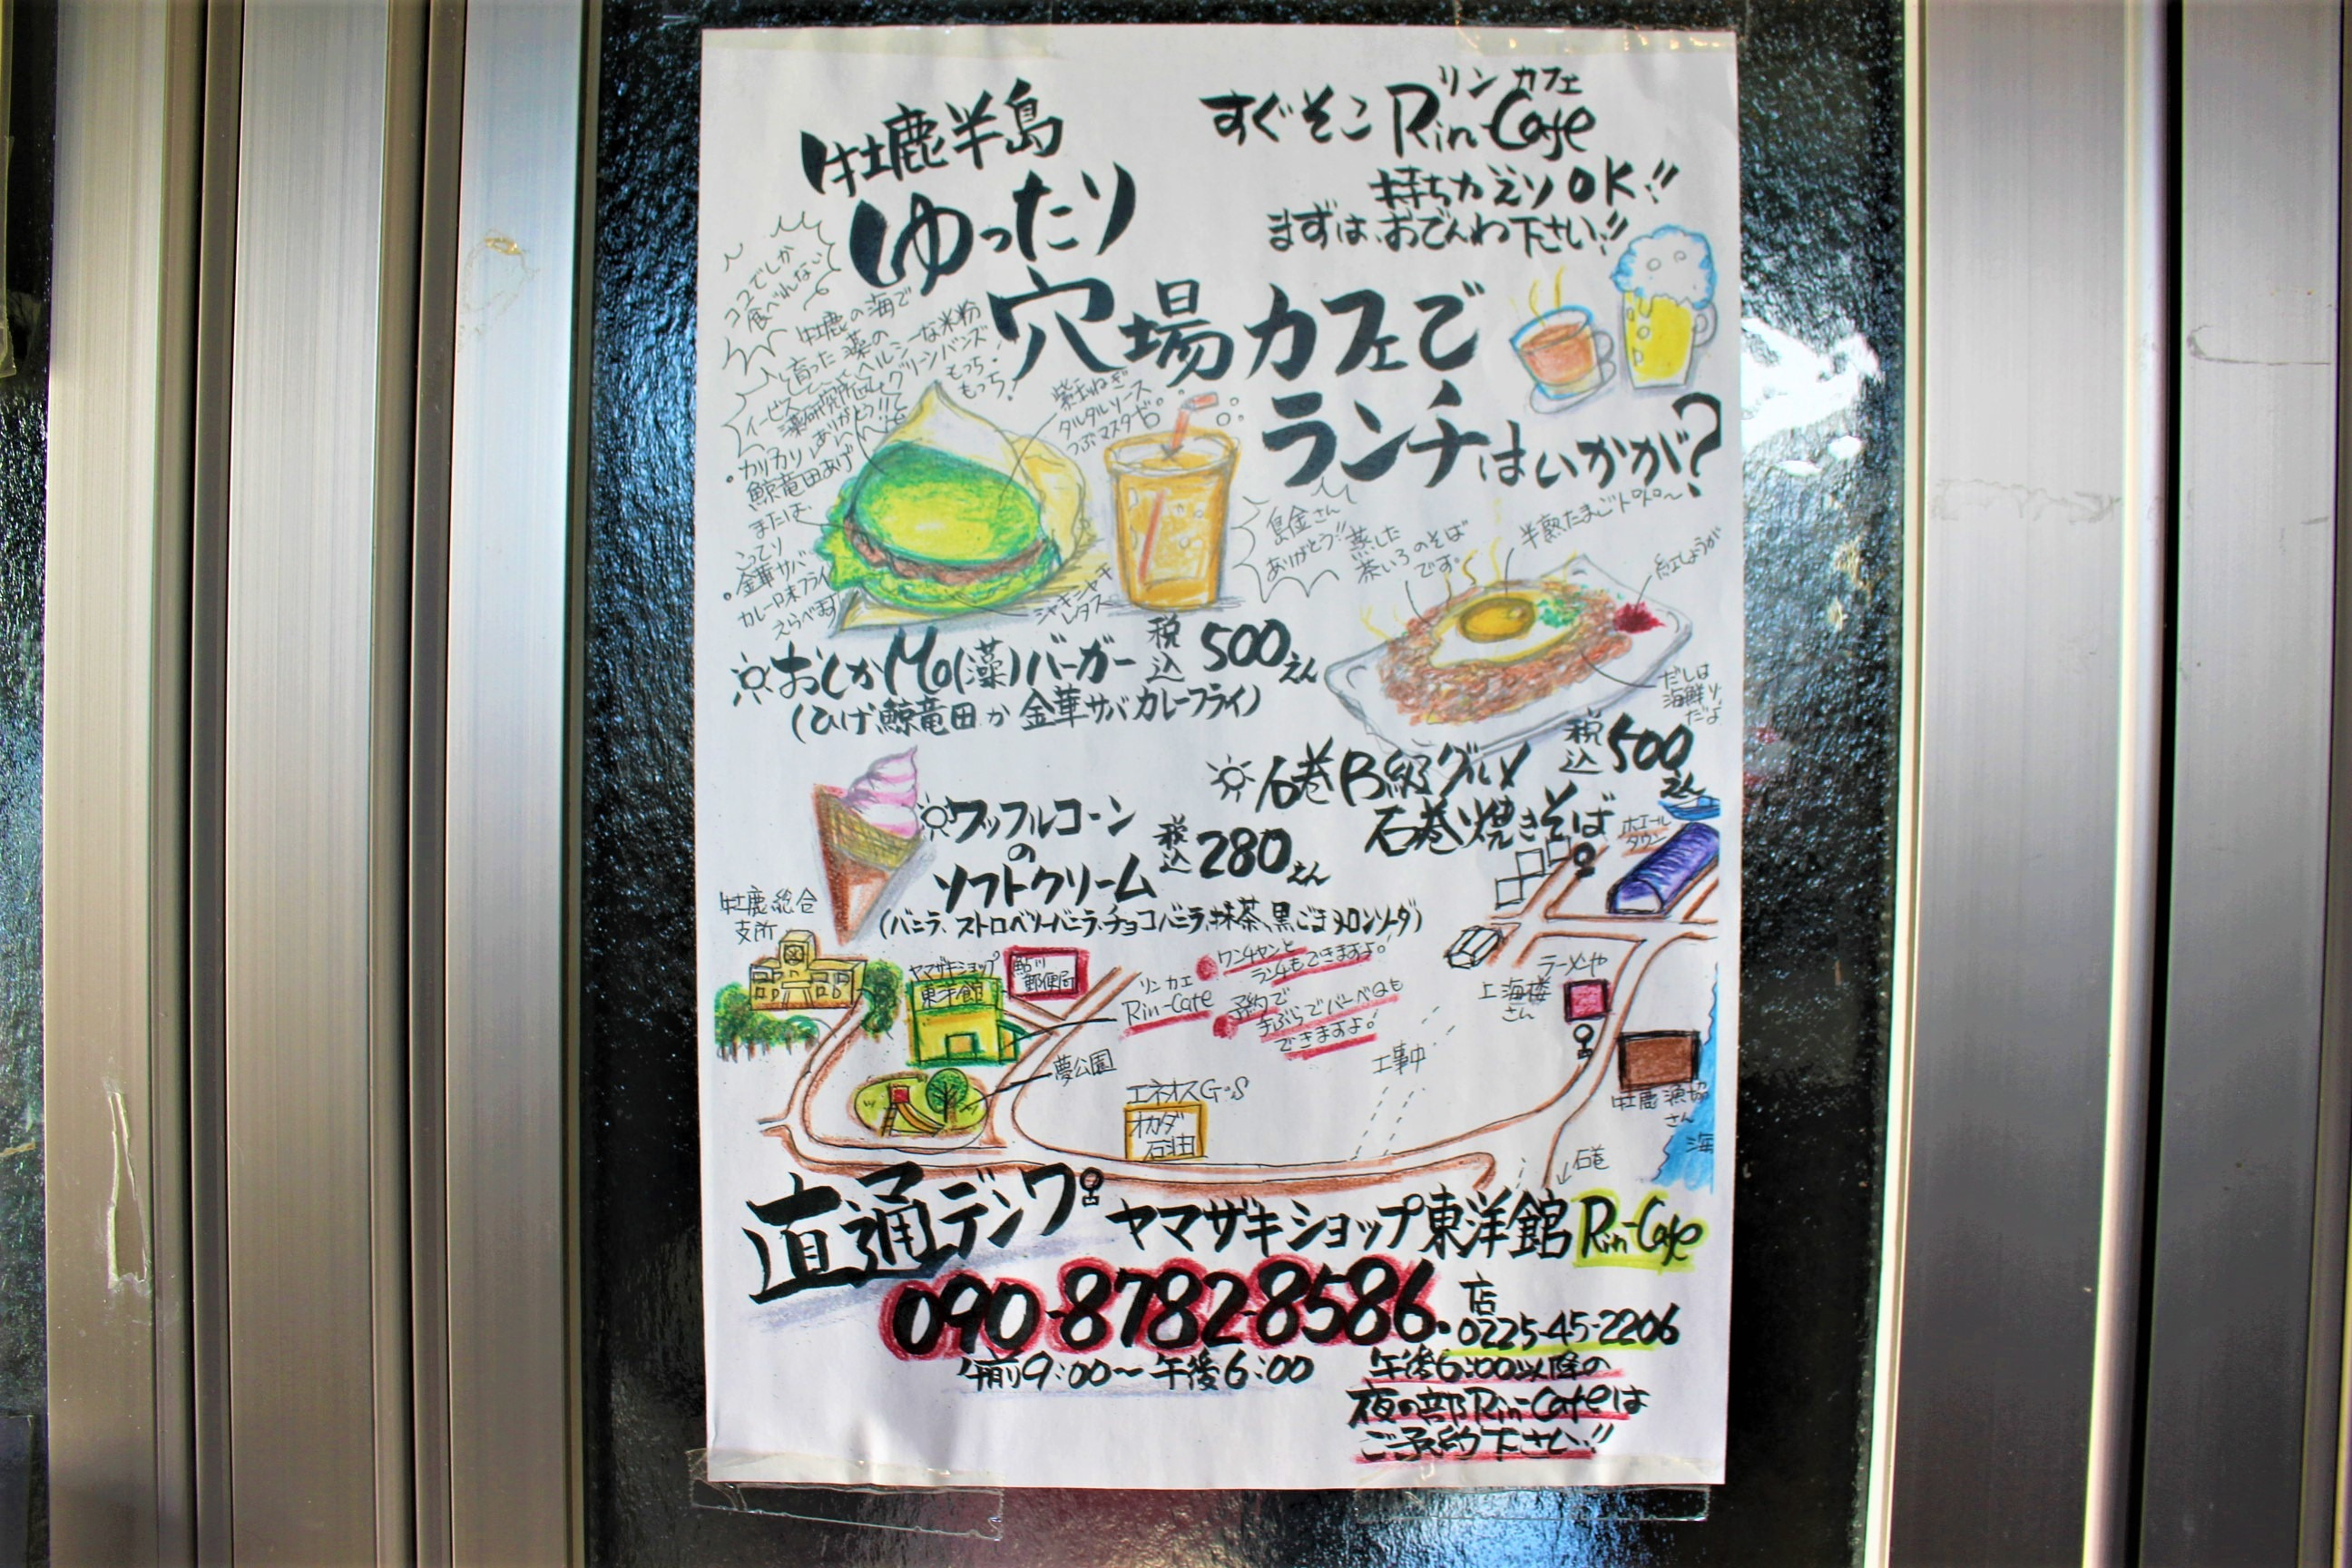 牡鹿半島
ゆったり
穴場カフェで
ランチはいかが?
リン カフェ
すぐそこ Rin-Cafe
持ちかえりOK!!
まずは、おでんわ下さい!!
ココでしか
食べれない
牡鹿の海で
育った藻の
ヘルシーな米粉
グリーンバンズ
もっち!
もっち!
ありがとう!!
・カリカリ
鯨竜田あげ
または、
こってり
・金華サバ
カレー味フライ
えらべます
紫玉ねぎ
タルタルソース
つぶマスタード。
シャキシャキ
レタス
島金さん
ありがとう!!
蒸した
茶いろのそば
です。
半熟たまごトロトロ〜
紅しょうが
だしは
海鮮
だよ
おしかMo(藻)バーガー 税込 500えん
(ひげ鯨竜田か金華サバカレーフライ)
石巻B級グルメ 税込 500えん
石巻焼きそば
ワッフルコーン
の
ソフトクリーム 税込 280えん
(バニラ、ストロベリーバニラ、チョコバニラ、抹茶、黒ごま、メロンソーダ)
ホエール
タウン
牡鹿総合
支所
ヤマザキショップ
東洋館
鮎川
郵便局
リン カフェ
Rin-Cafe
ワンチャンと
ランチもできますよ!
予約で
手ぶらでバーベQも
できますよ!
ラーメンや
上海楼
さん
工事中
夢公園
エネオスG・S
オカダ
石油
牡鹿漁協
さん
海
石巻
直通デンワ
ヤマザキショップ東洋館 Rin-Cafe
090-8782-8586.
店
0225-45-2206
午前9:00〜午後6:00
午後6:00以降の
夜の部Rin-Cafeは
ご予約下さい!!